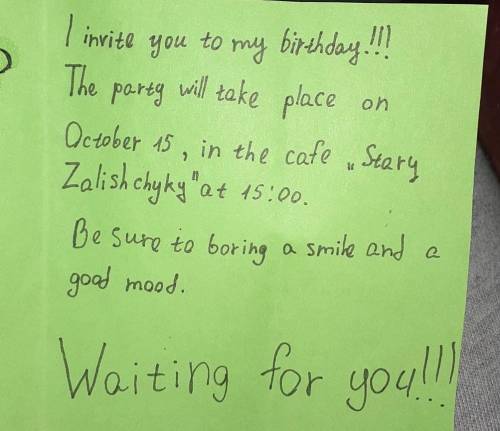 I invite you to my birthday!!!
The party will take place on
October 15, in the cafe „Stary
Zalishchyky" at 15:00.
Be sure to boring a smile and a
good mood.
Waiting for you!!!